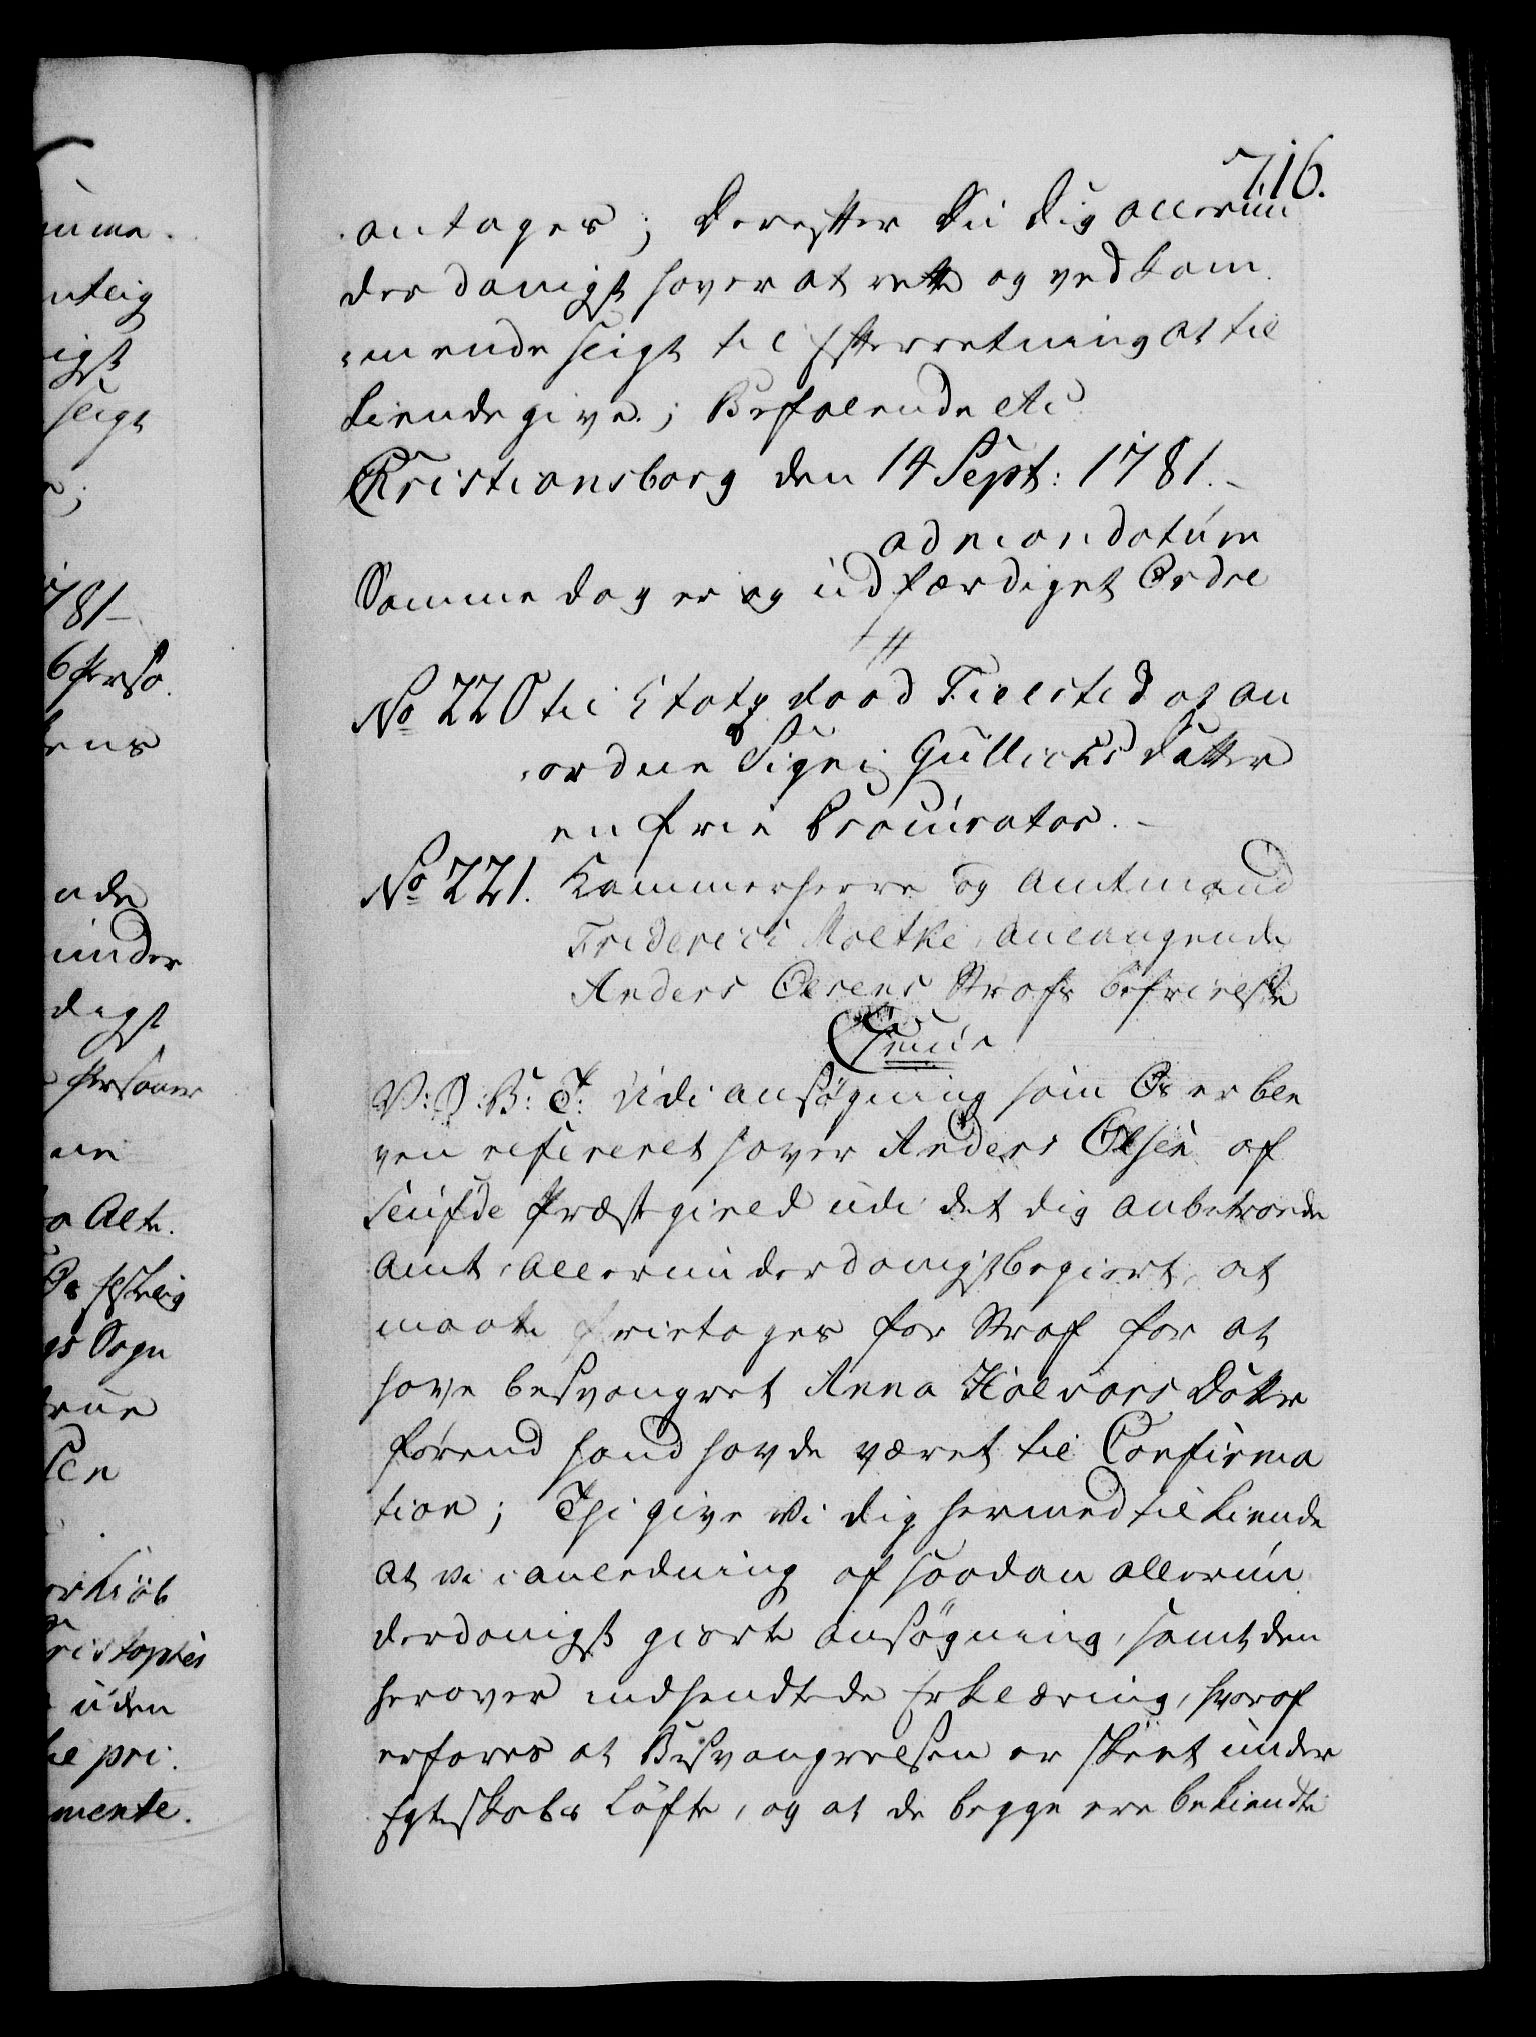 716.
antages; derefter Du dig allerun
derdanigst haver at rette og vedkom
mende sligt til Efterretning at til
kiende give; Befalende etc
Christiansborg den 14 Sept: 1781.-
ad mandatum
Samme dag er og udfærdiget Ordre
No 220 til Etatzraad Fielsted at an
ordne Signi Gullichs datter
en frie Procurator.-
No 221. Kammerherre og Amtmand
Friderich Moltke, anlangende
Anders Olsens Strafs befrielse
V: G: B: T: Udi ansøgning som Os er ble
ven refereret haver Anders Olsen af
Præstegield udi det dig anbetroede
Amt, allerunderdanigst begiert, at
maatte fritages for Straf for at
have besvangret Anna Halvors datter
førend hand havde været til Confirma
tion; Thi give Vi dig hermed tilkiende
at vi i anledning af saadan allerun
derdanigst giorte ansøgning, samt den
herover indsendte de Erklæring, hvoraf
erfares at Besvangrelsen er skeet under
Egteskabs Løfte, og at de begge ere bekiendte
umme.
ntlig
igst
sligt
781-
6 Perso
ens
nde
under
digst
Personer
a Alt.
Os
gs Sogn
sen
or Kiøb
ristophei
uden
pri.
mente.